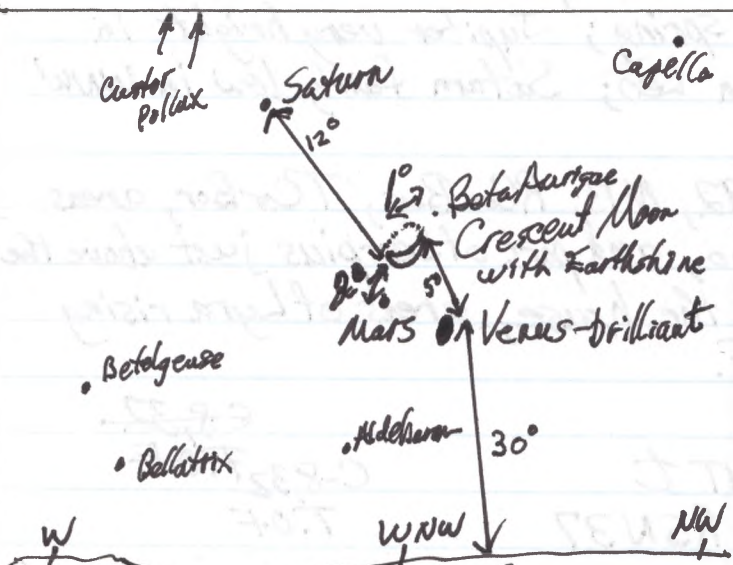 Castor
Pollux
Saturn
Capella
12°
1°
Beta Aurigae
Crescent Moon
with Earthshine
5°
Mars
Venus-brilliant
Betelgeuse
Aldebaran
30°
Bellatrix
W
WNW
NW